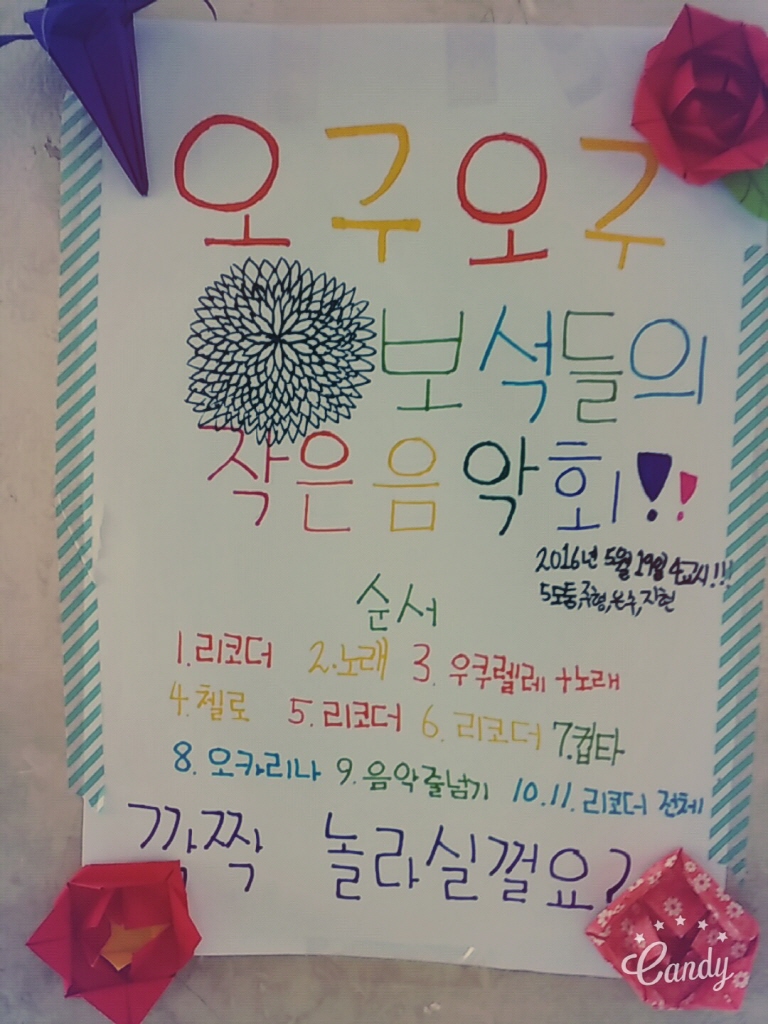 오구오구
보석들의
작은음악회!!
2016년 5월 19일 4교시!!!
순서
1.리코더 2.노래 3. 우쿠렐레+노래
4.첼로 5.리코더 6.리코더 7.컵타
8.오카리나 9.음악줄넘기 10.11.리코더 전체
깜짝 놀라실껄요?
Candy